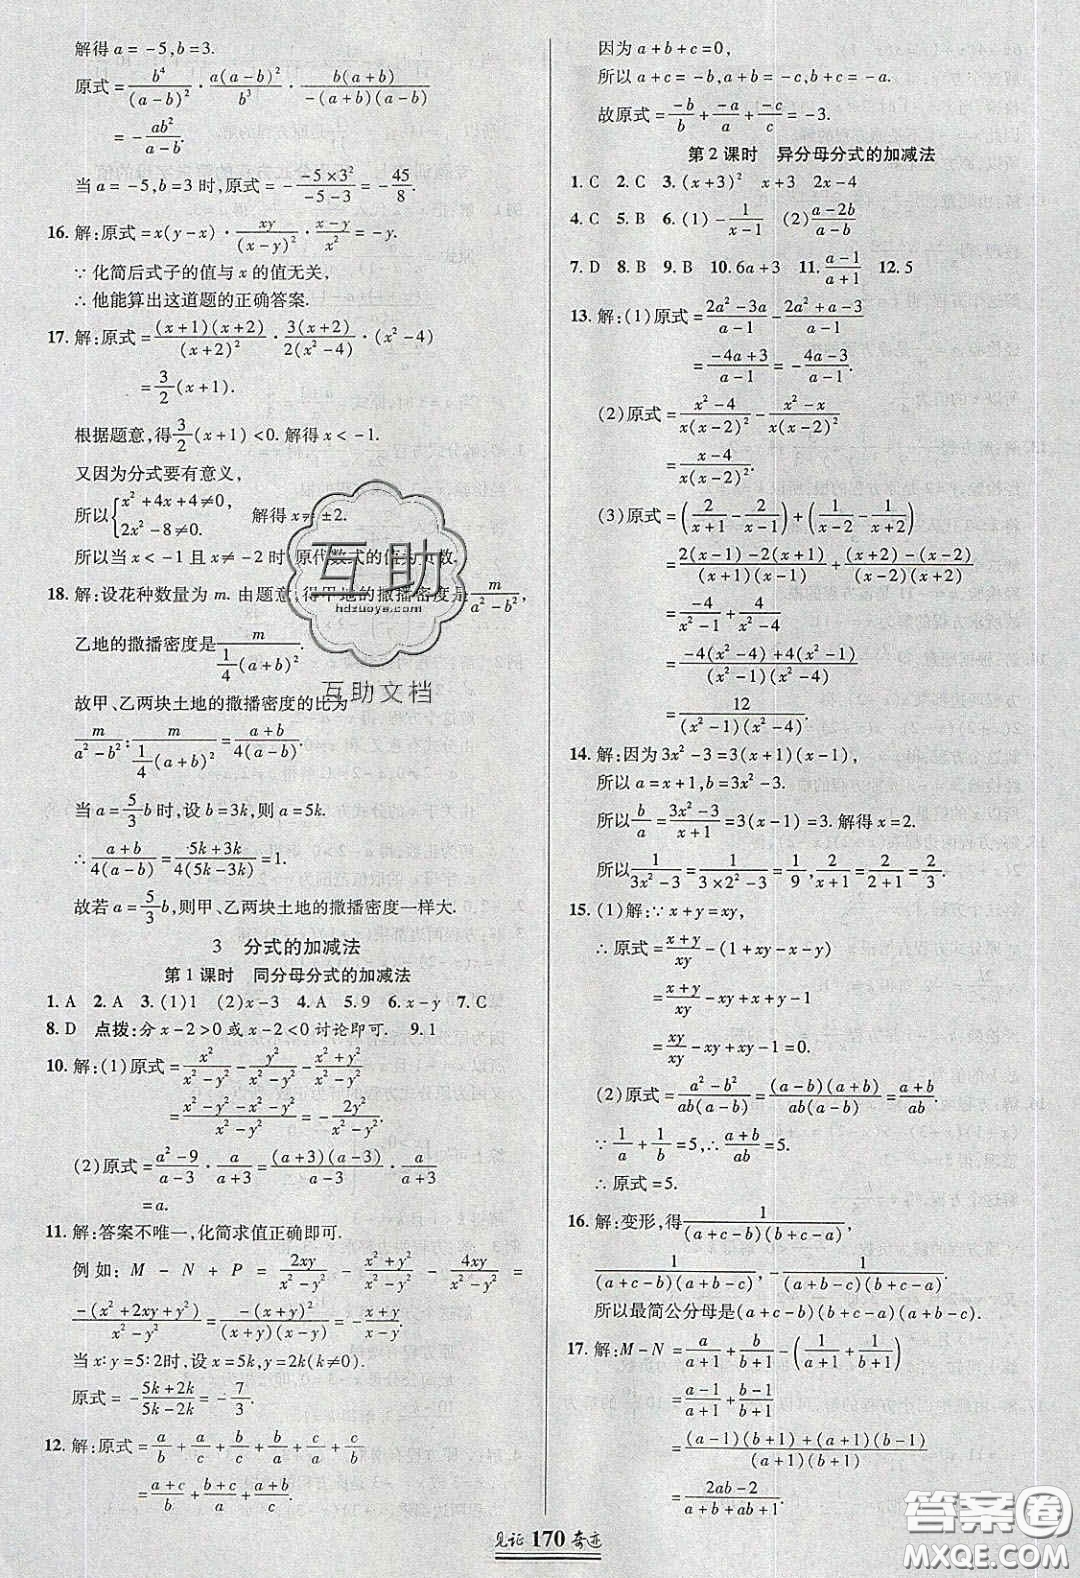 解得a=-5,b=3.
原式=b⁴/(a-b)²·a(a-b)²/b³·b(a+b)/-(a+b)(a-b)
=-ab²/(a-b).
当a=-5,b=3时,原式=-(-5×3²)/(-5-3)=-45/8.
16.解:原式=x(y-x)·xy/(x-y)²·(x-y)/x²=-y.
∵化简后式子的值与x的值无关,
∴他能算出这道题的正确答案.
17.解:原式=(x+1)(x+2)/(x+2)²·3(x+2)/2(x²-4)·(x²-4)
=3/2(x+1).
根据题意,得3/2(x+1)<0.解得x<-1.
又因为分式要有意义,
所以{x²+4x+4≠0, 2x²-8≠0. 解得x≠±2.
所以当x<-1且x≠-2时,原代数式的值为负数.
18.解:设花种数量为m.由题意,得甲地的撒播密度是m/(a²-b²),
乙地的撒播密度是m/(1/4(a+b)²).
故甲、乙两块土地的撒播密度的比为
m/(a²-b²):m/(1/4(a+b)²)=(a+b)/4(a-b).
当a=5/3b时,设b=3k,则a=5k.
∴(a+b)/4(a-b)=(5k+3k)/4(5k-3k)=1.
故若a=5/3b,则甲、乙两块土地的撒播密度一样大.
3 分式的加减法
第1课时 同分母分式的加减法
1.A 2.A 3.(1)1 (2)x-3 4.A 5.9 6.x-y 7.C
8.D 点拨:分x-2>0或x-2<0讨论即可. 9.1
10.解:(1)原式=x²/(x²-y²)-y²/(x²-y²)-(x²+y²)/(x²-y²)
=(x²-y²-x²-y²)/(x²-y²)=-2y²/(x²-y²).
(2)原式=(a²-9)/(a-3)·a/(a+3)=(a+3)(a-3)/(a-3)·a/(a+3)
=a.
11.解:答案不唯一,化简求值正确即可.
例如:M-N+P=2xy/(x²-y²)-(x²+y²)/(x²-y²)-4xy/(x²-y²)=
-(x²+2xy+y²)/(x²-y²)=-(x+y)²/(x+y)(x-y)=-(x+y)/(x-y).
当x:y=5:2时,设x=5k,y=2k(k≠0).
原式=-(5k+2k)/(5k-2k)=-7/3.
12.解:原式=a/b+a/c+b/c+b/a+c/a+c/b
=(a+c)/b+(b+c)/a+(a+b)/c.
因为a+b+c=0,
所以a+c=-b,a+b=-c,b+c=-a.
故原式=-b/b+-a/a+-c/c=-3.
第2课时 异分母分式的加减法
1.C 2.C 3.(x+3)² x+3 2x-4
4.C 5.B 6.(1)-1/(x-1) (2)(a-2b)/(a-b)
7.D 8.B 9.B 10.6a+3 11.(a-1)/(a+1) 12.5
13.解:(1)原式=(2a²-3a)/(a-1)-(2a²+a-3)/(a-1)
=(-4a+3)/(a-1)=-(4a-3)/(a-1).
(2)原式=(x²-4)/x(x-2)²-(x²-x)/x(x-2)²
=(x-4)/x(x-2)².
(3)原式=(2/(x+1)-2/(x-1))+(1/(x-2)-1/(x+2))
=(2(x-1)-2(x+1))/(x+1)(x-1)+((x+2)-(x-2))/(x+2)(x-2)
=-4/(x²-1)+4/(x²-4)
=(-4(x²-4)+4(x²-1))/(x²-1)(x²-4)
=12/(x²-1)(x²-4).
14.解:因为3x²-3=3(x+1)(x-1),
所以a=x+1,b=3x²-3.
所以b/a=(3x²-3)/(x+1)=3(x-1)=3.解得x=2.
所以1/(3x²-3)=1/(3×2²-3)=1/9,x/(x+1)=2/(2+1)=2/3.
15.(1)解:∵x+y=xy,
∴原式=(x+y)/xy-(1+xy-x-y)
=(x+y)/xy-1-xy+x+y
=xy/xy-xy+xy-1=0.
(2)原式=(a²-b²)/ab(a-b)=(a-b)(a+b)/ab(a-b)=(a+b)/ab.
∵1/a+1/b=5,∴(a+b)/ab=5.
∴原式=5.
16.解:变形,得1/(a+c-b)(b+c-a),
1/(a+c-b)(a+b-c),-1/(a+b-c)(b+c-a).
所以最简公分母是(a+c-b)(b+c-a)(a+b-c).
17.解:M-N=a/(a+1)+b/(b+1)-(1/(a+1)+1/(b+1))
=(a-1)/(a+1)+(b-1)/(b+1)
=((a-1)(b+1)+(a+1)(b-1))/(a+1)(b+1)
=(2ab-2)/(a+b+ab+1).
见证170奇迹
互助
hdzuoye.com
互助文档
答案圈
MXQE.COM